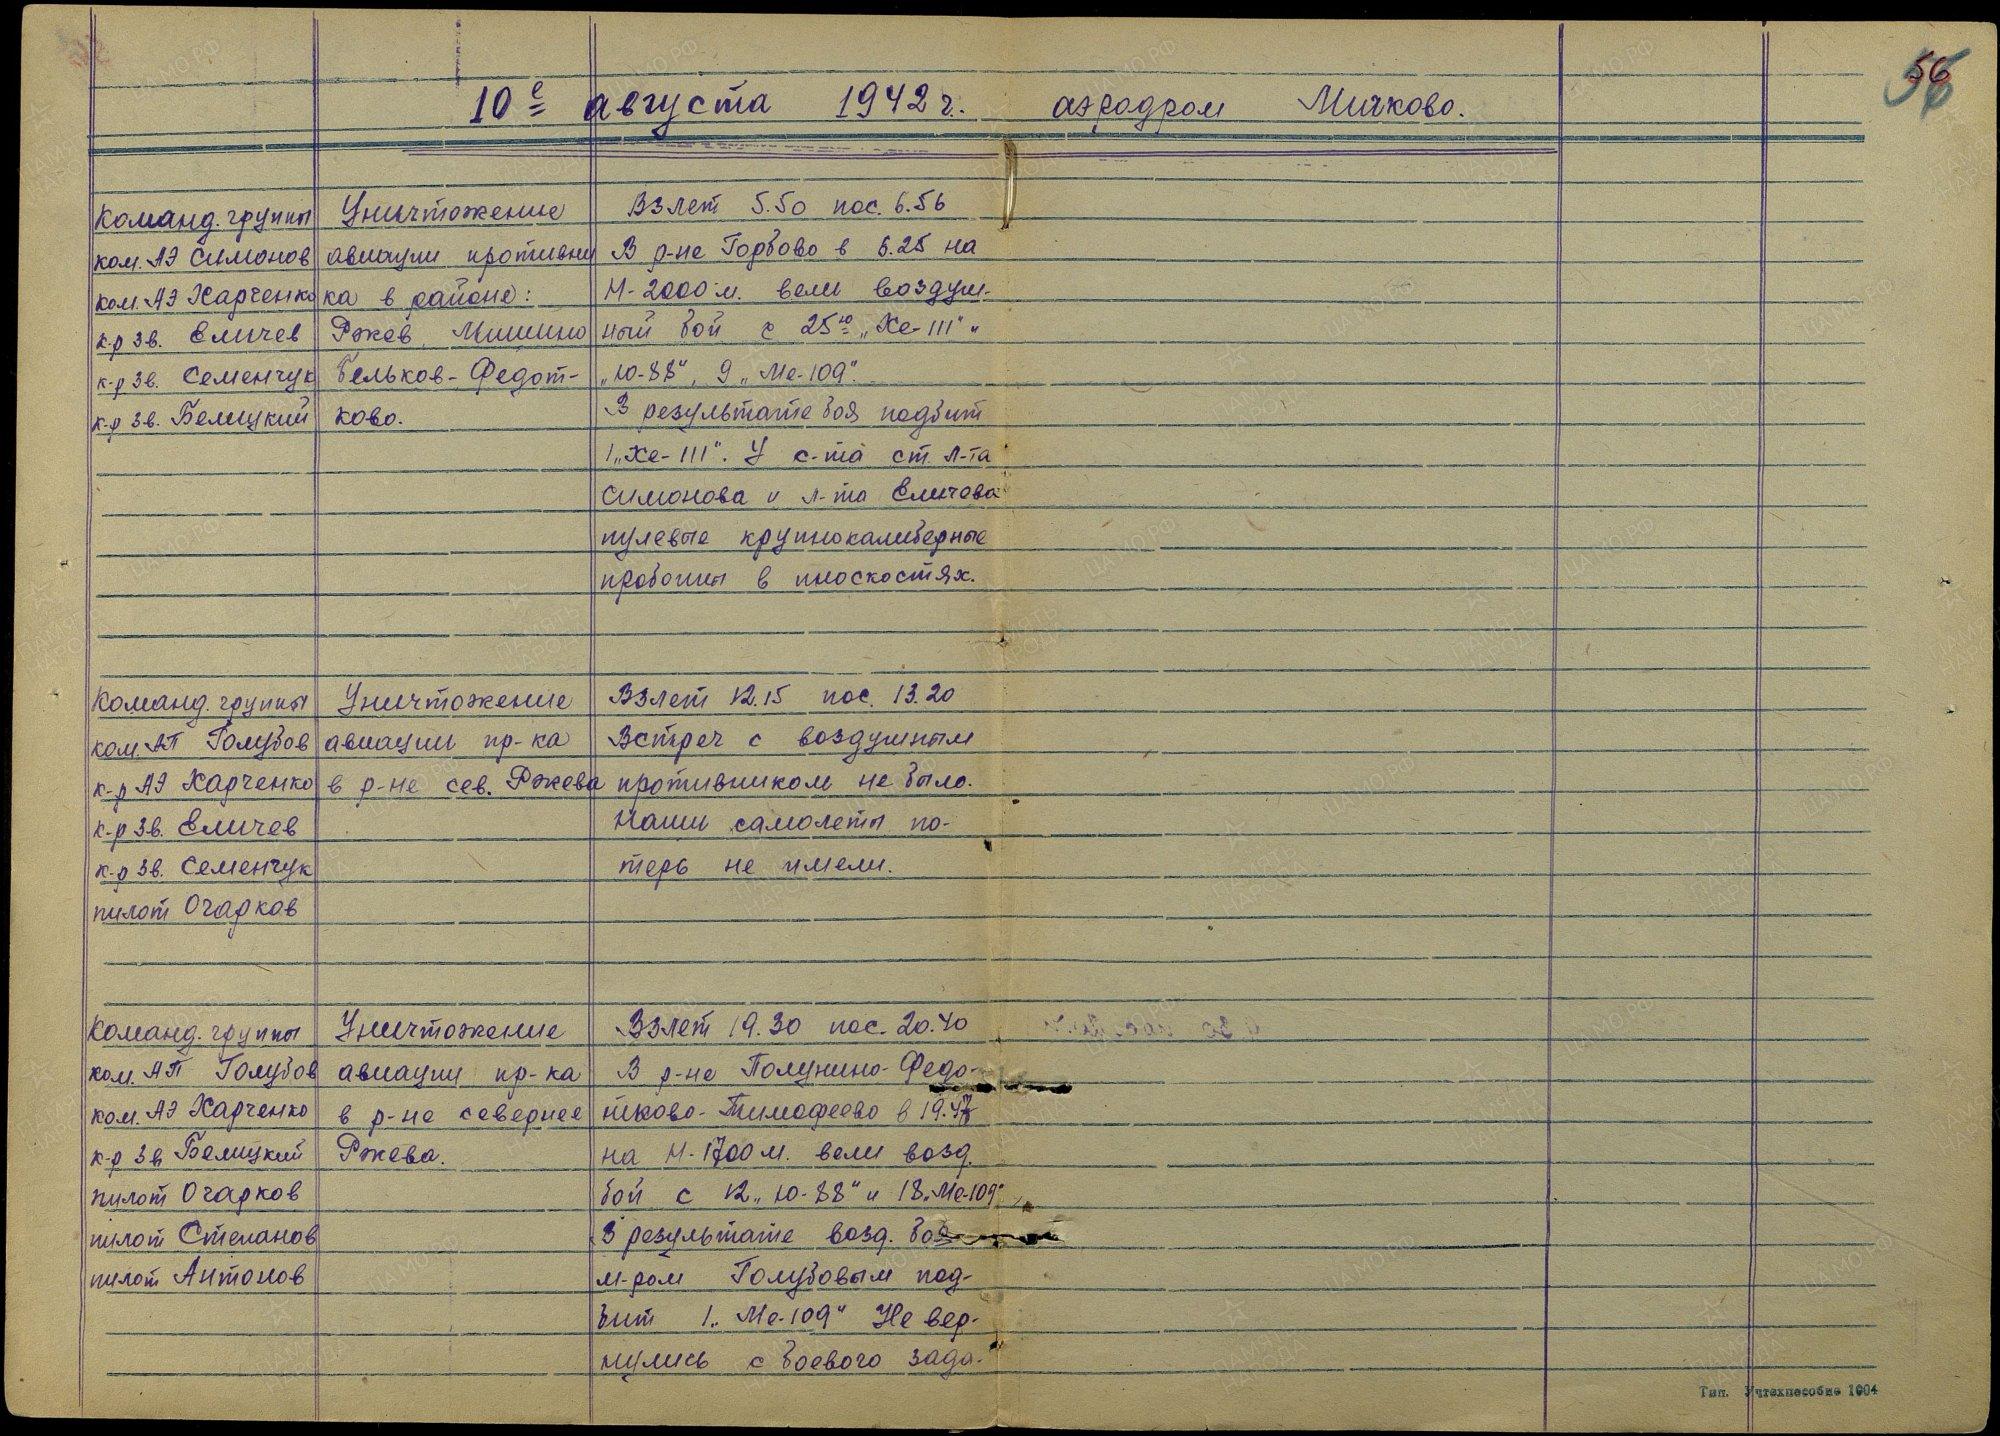 56
10е августа 1942 г. аэродром Мичково.
Команд. группы
ком. АЭ Симонов
ком. АЭ Харченко
к-р зв. Еличев
к-р зв. Семенчук
к-р зв. Белицкий
Уничтожение
авиации противни
ка в районе:
Ржев, Мишино
Бельков - Федот-
ково.
Взлет 5.50 пос. 6.56
В р-не Горбово в 6.25 на
Н-2000 м. вели воздуш-
ный бой с 25ю „Хе-111" и
„Ю-88", 9 „Ме-109".
В результате боя подбит
1 „Хе-111". У с-та ст. л-та
Симонова и л-та Еличева
пулевые крупнокалиберные
пробоины в плоскостях.
Команд. группы
ком. АП Голубов
к-р АЭ Харченко
к-р зв. Еличев
к-р зв. Семенчук
пилот Очарков
Уничтожение
авиации пр-ка
в р-не сев. Ржева
Взлет 12.15 пос. 13.20
Встреч с воздушным
противником не было.
Наши самолеты по-
терь не имели.
Команд. группы
ком. АП Голубов
ком. АЭ Харченко
к-р зв Белицкий
пилот Очарков
пилот Степанов
пилот Антонов
Уничтожение
авиации пр-ка
в р-не севернее
Ржева.
Взлет 19.30 пос. 20.40
В р-не Полунино - Федо-
тково - Тимофеево в 19.47
на Н-1700 м. вели возд.
бой с 12 „Ю-88" и 18 „Ме-109"
В результате возд. боя
м-ром Голубовым под-
бит 1 „Ме-109" Не вер-
нулись с боевого зада-
Тип. Учтехпособие 1004